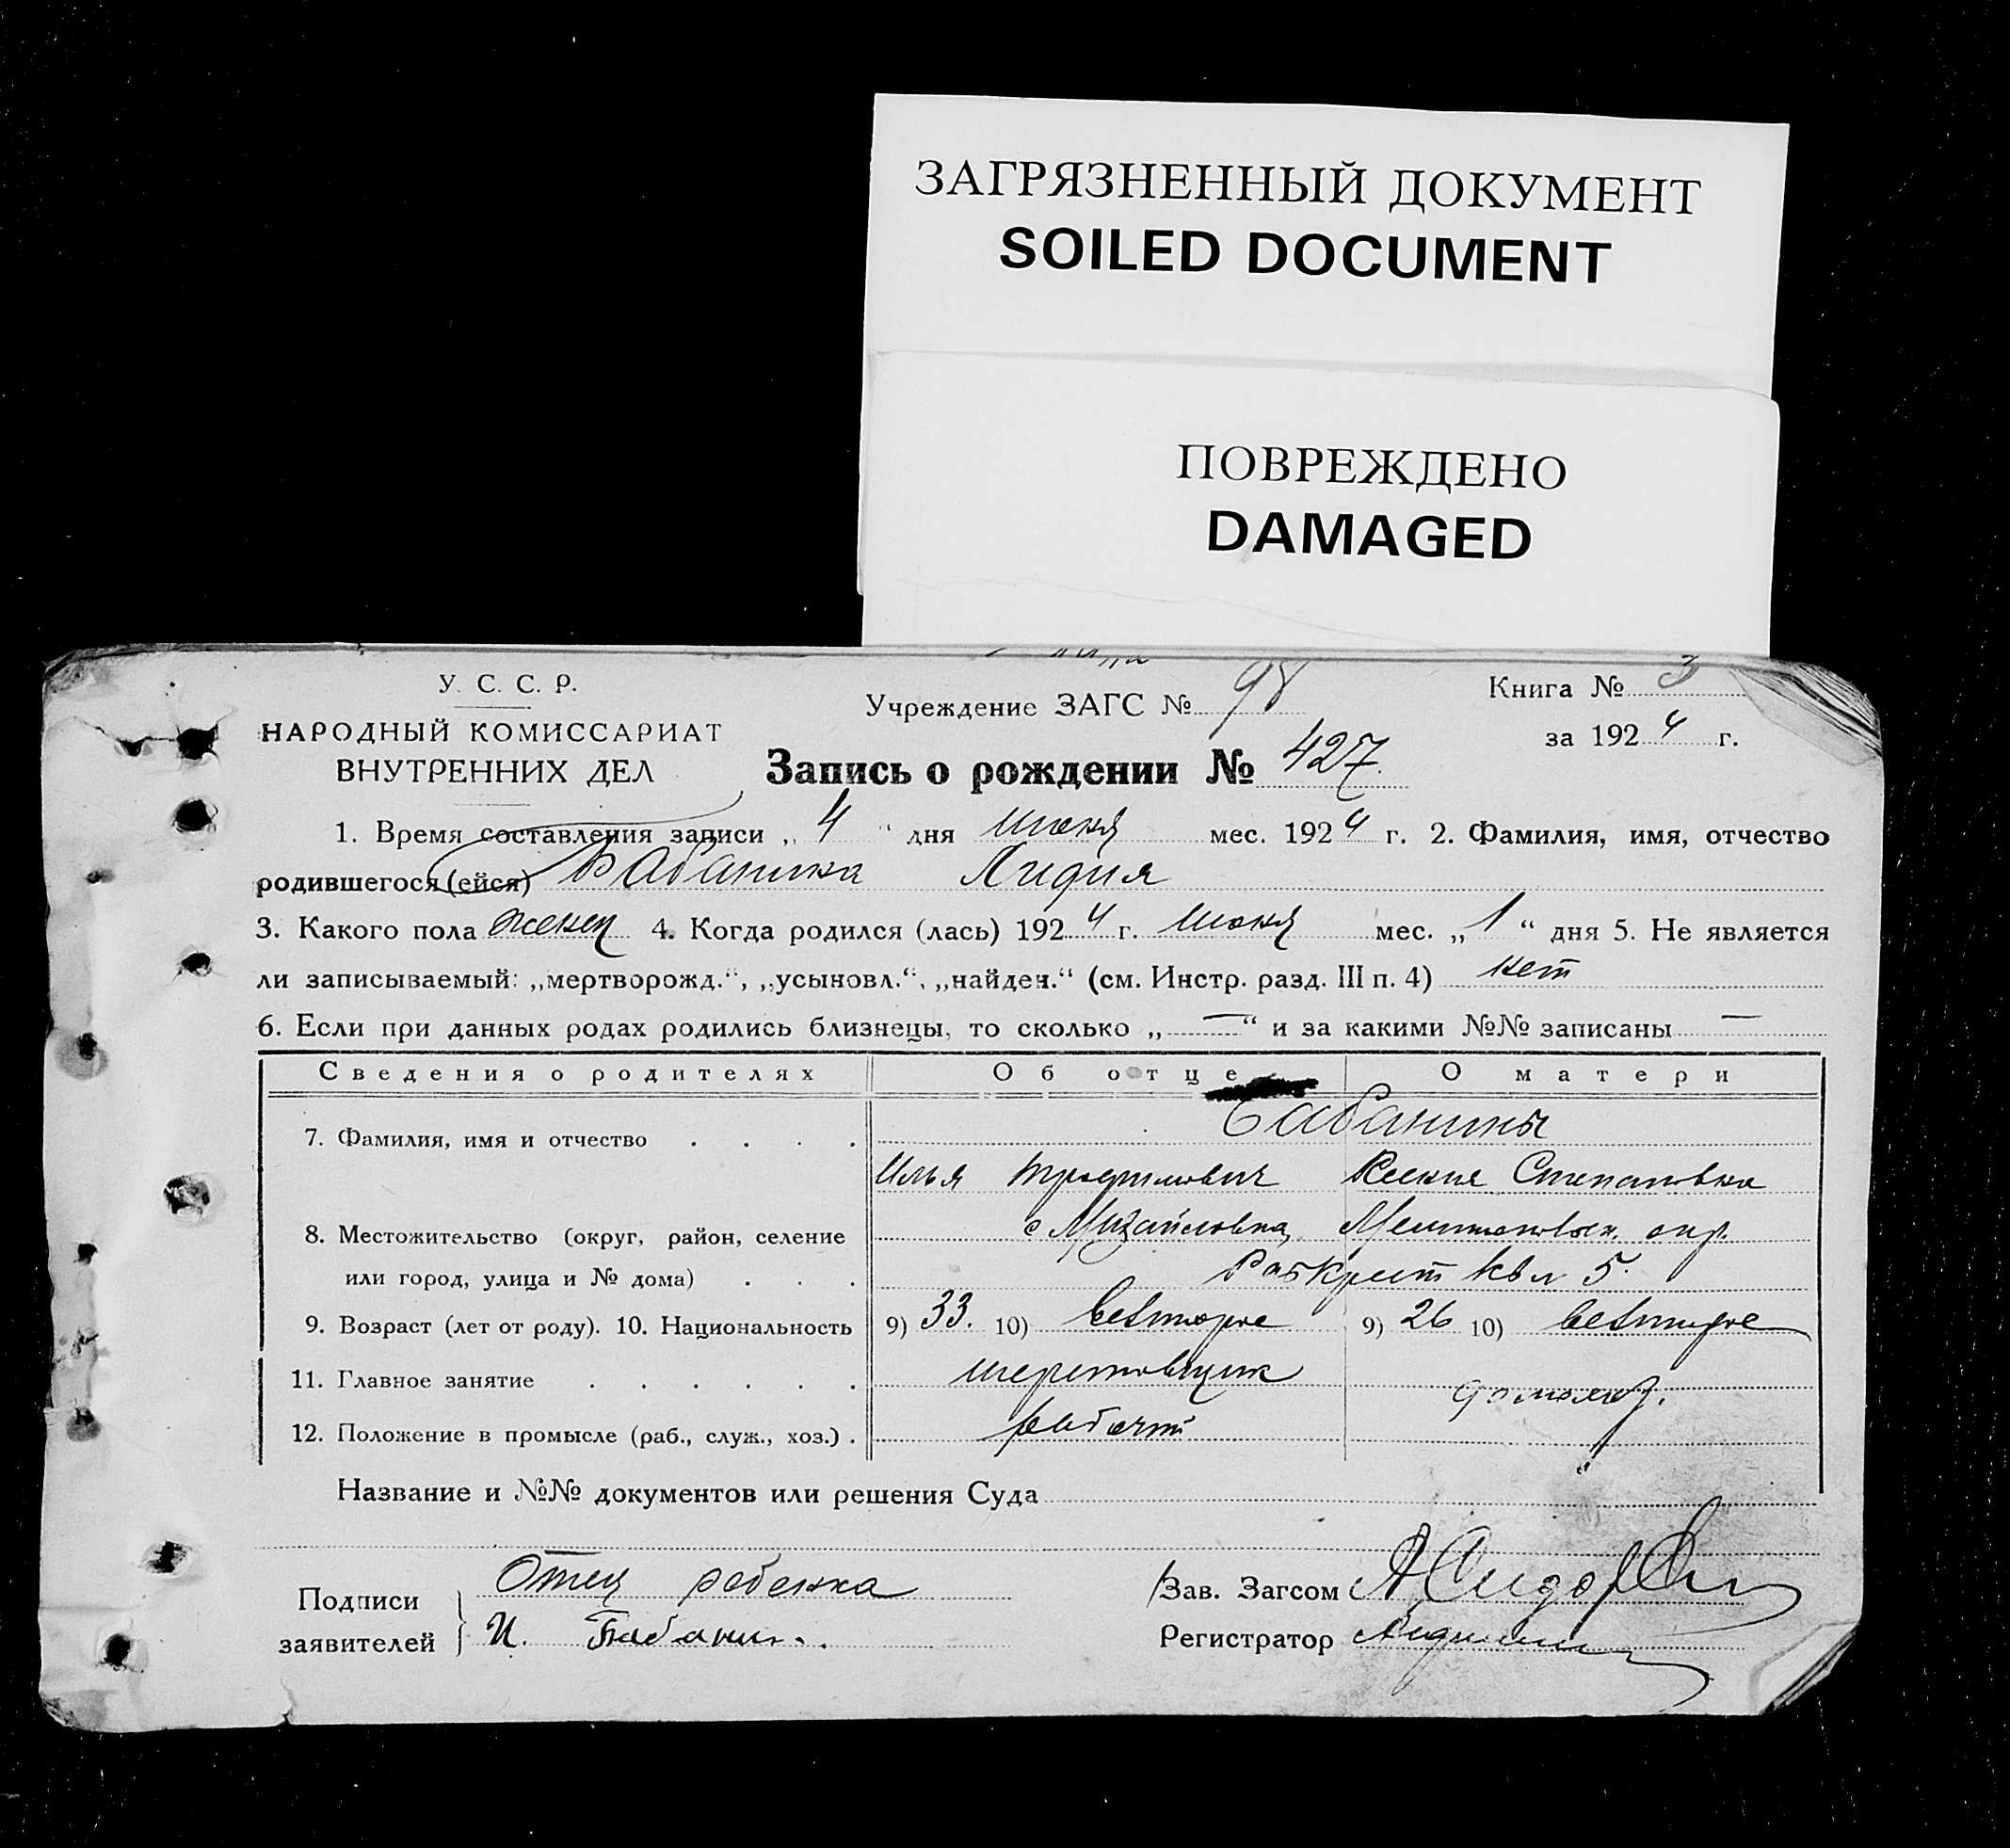 ЗАГРЯЗНЕННЫЙ ДОКУМЕНТ
SOILED DOCUMENT
ПОВРЕЖДЕНО
DAMAGED
У. С. С. Р.
НАРОДНЫЙ КОМИССАРИАТ
ВНУТРЕННИХ ДЕЛ
Учреждение ЗАГС № 98
Книга № 3
за 1924 г.
Запись о рождении № 427
1. Время составления записи „ 4 “ дня июня мес. 1924 г. 2. Фамилия, имя, отчество
родившегося (ейся) Бабанина Лидия
3. Какого пола женск 4. Когда родился (лась) 1924 г. июня мес. „ 1 “ дня 5. Не является
ли записываемый: „мертворожд.“, „усыновл.“, „найден.“ (см. Инстр. разд. III п. 4) нет
6. Если при данных родах родились близнецы, то сколько „ — “ и за какими №№ записаны —
Сведения о родителях Об отце О матери
7. Фамилия, имя и отчество . . . . Бабанины
Илья Трофимович Ксения Степановна
8. Местожительство (округ, район, селение с Михайловка,
или город, улица и № дома) . . . 5
9. Возраст (лет от роду). 10. Национальность 9) 33. 10) 9) 26 10)
11. Главное занятие . . . . . .
12. Положение в промысле (раб., служ., хоз.) . рабочий
Название и №№ документов или решения Суда
Подписи
заявителей
Отец ребенка
И. Бабанин.
Зав. Загсом
Регистратор